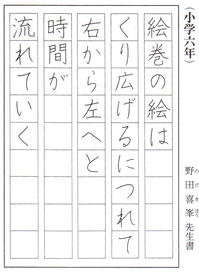 （小学六年）
野田喜峯先生書
のだきほう
絵巻の絵は
くり広げるにつれて
右から左へと
時間が
流れていく